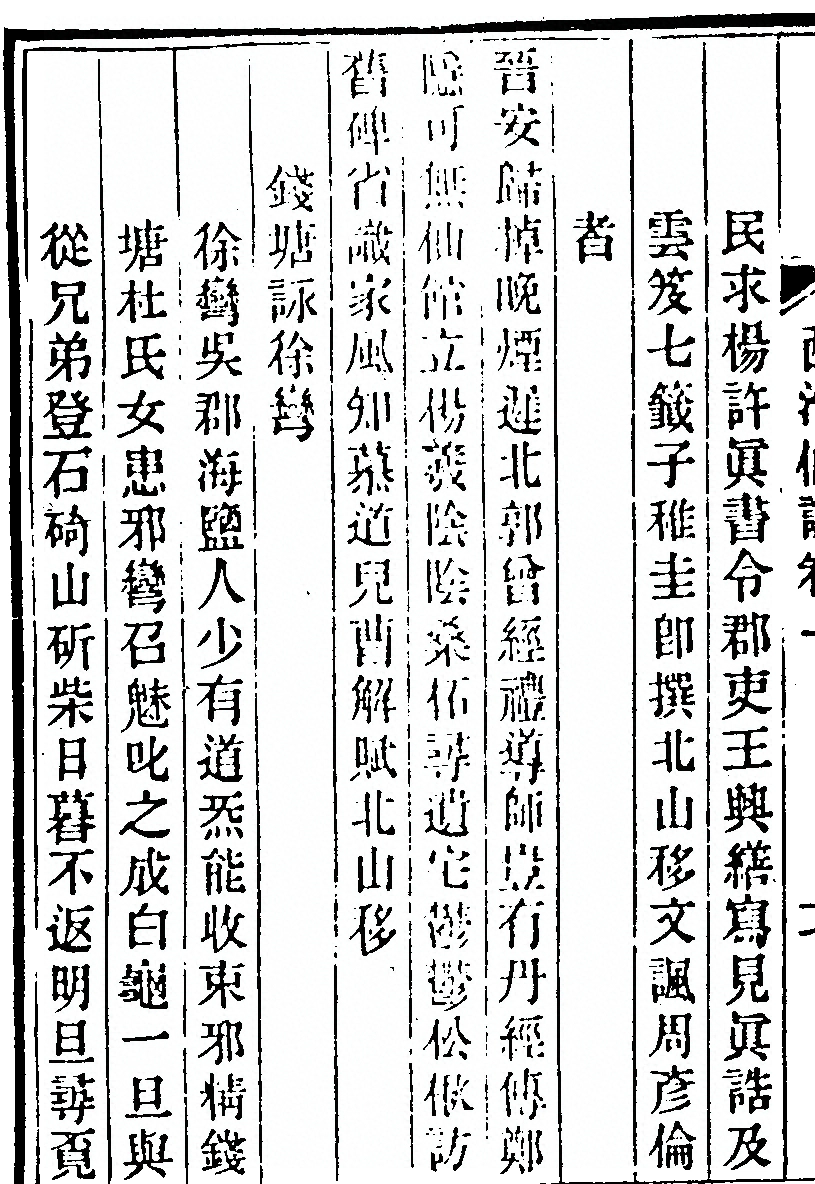 民求楊許眞書令郡吏王興繕寫見眞誥及
雲笈七籤子稚圭卽撰北山移文諷周彥倫
者
晉安歸棹晚煙遲北郭曾經禮導師豈有丹經傳鄭
隱可無仙館立楊羲陰陰桑柘尋遺宅鬱鬱松楸訪
舊碑省識家風知慕道兒曹解賦北山移
錢塘詠徐彎
徐彎吳郡海鹽人少有道炁能收束邪精錢
塘杜氏女患邪彎召魅叱之成白龜一旦與
從兄弟登石碕山斫柴日暮不返明旦尋覓